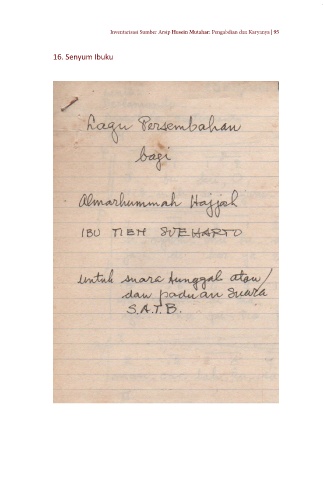 Inventarisasi Sumber Arsip Husein Mutahar: Pengabdian dan Karyanya | 95
16. Senyum Ibuku
Lagu Persembahan
bagi
Almarhummah Hajjah
IBU TIEN SOEHARTO
untuk suara tunggal atau/
dan paduan suara
S.A.T.B.